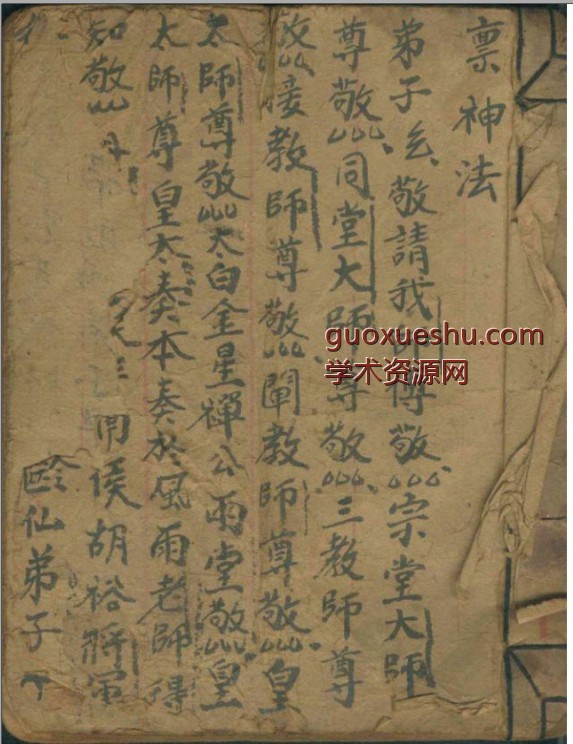 禀神法
弟子 敬請我師傅敬 宗堂大師
尊敬 同堂大師尊敬 三教師尊
敬 接教師尊敬 闡教師尊敬 皇
太師尊敬 太白金星禪公雨堂敬 皇
太師尊皇太奏本奏於風雨老師得
知敬
用侯胡裕將軍
仙弟子
guoxueshu.com
学术资源网